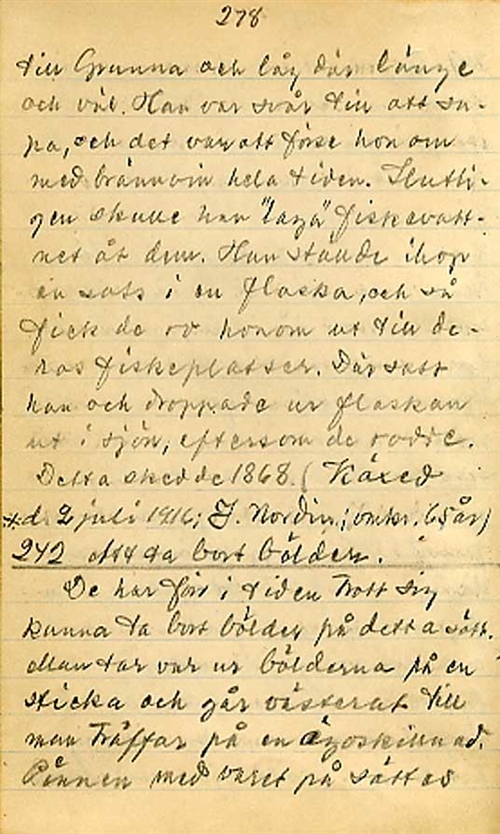 278
till Grunna och låg där länge
och väl. Han var svår till att su-
pa, och det var att förse honom
med brännvin hela tiden. Slutli-
gen skulle han "laga" fiskevatt-
net åt dem. Han ställde ihop
en sats i en flaska, och så
fick de ro honom ut till de-
ras fiskeplatser. Där satt
han och droppade ur flaskan
ut i sjön, eftersom de rodde.
Detta skedde 1868. (Käxed
d. 2 juli 1916; J. Nordin; omkr. 65 år)
242 Att ta bort bölder.
De har förr i tiden trott sig
kunna ta bort bölder på detta sätt.
Man tar var ur bölderna på en
sticka och går västerut till
man träffar på en ägoskillnad.
Pinnen med varet på sättes